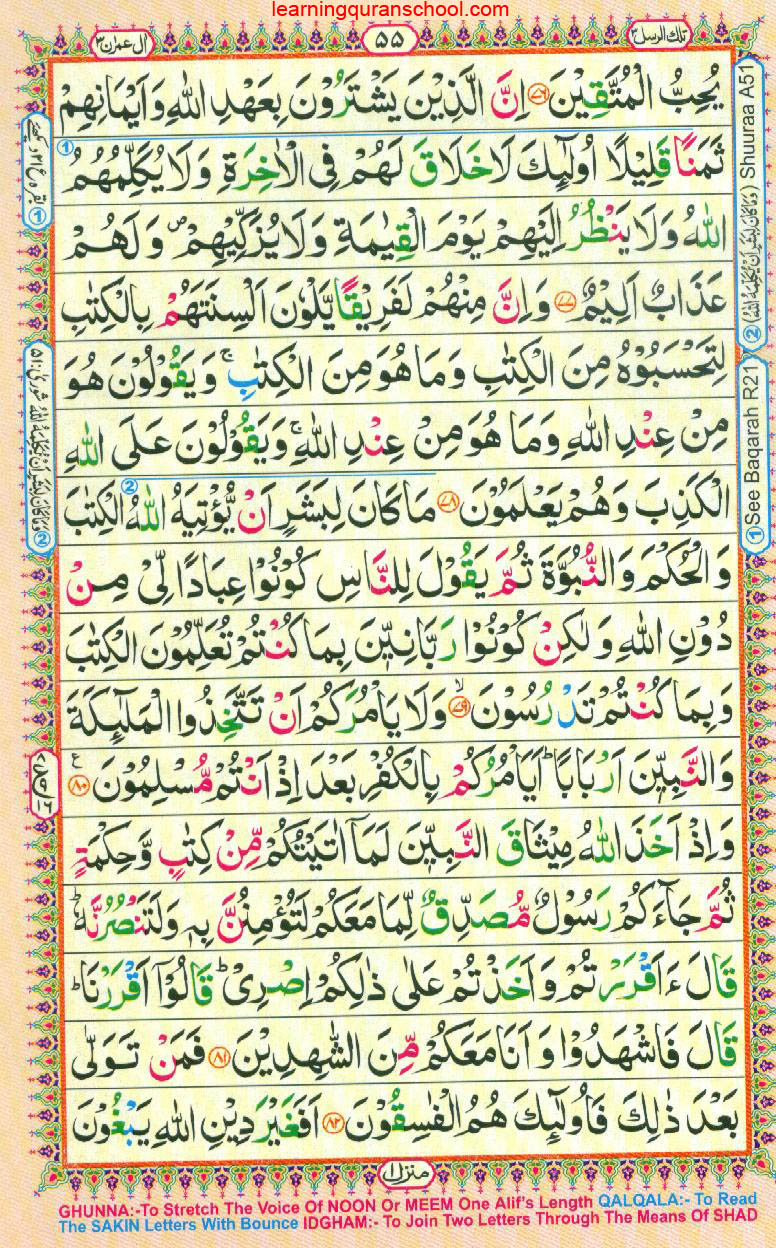 learningquranschool.com
اٰل عمرٰن ۳
۵۵
تلك الرسل ۳
يُحِبُّ الْمُتَّقِيْنَ ﴿۷۶﴾ اِنَّ الَّذِيْنَ يَشْتَرُوْنَ بِعَهْدِ اللّٰهِ وَاَيْمَانِهِمْ
ثَمَنًا قَلِيْلًا اُولٰٓئِكَ لَا خَلَاقَ لَهُمْ فِى الْاٰخِرَةِ وَلَا يُكَلِّمُهُمُ
اللّٰهُ وَلَا يَنْظُرُ اِلَيْهِمْ يَوْمَ الْقِيٰمَةِ وَلَا يُزَكِّيْهِمْ ۖ وَلَهُمْ
عَذَابٌ اَلِيْمٌ ﴿۷۷﴾ وَاِنَّ مِنْهُمْ لَفَرِيْقًا يَّلْوٗنَ اَلْسِنَتَهُمْ بِالْكِتٰبِ
لِتَحْسَبُوْهُ مِنَ الْكِتٰبِ وَمَا هُوَ مِنَ الْكِتٰبِ ۚ وَيَقُوْلُوْنَ هُوَ
مِنْ عِنْدِ اللّٰهِ وَمَا هُوَ مِنْ عِنْدِ اللّٰهِ ۚ وَيَقُوْلُوْنَ عَلَى اللّٰهِ
الْكَذِبَ وَهُمْ يَعْلَمُوْنَ ﴿۷۸﴾ مَا كَانَ لِبَشَرٍ اَنْ يُّؤْتِيَهُ اللّٰهُ الْكِتٰبَ
وَالْحُكْمَ وَالنُّبُوَّةَ ثُمَّ يَقُوْلَ لِلنَّاسِ كُوْنُوْا عِبَادًا لِّىْ مِنْ
دُوْنِ اللّٰهِ وَلٰكِنْ كُوْنُوْا رَبَّانِيّٖنَ بِمَا كُنْتُمْ تُعَلِّمُوْنَ الْكِتٰبَ
وَبِمَا كُنْتُمْ تَدْرُسُوْنَ ﴿۷۹﴾ۙ وَلَا يَاْمُرَكُمْ اَنْ تَتَّخِذُوا الْمَلٰٓئِكَةَ
وَالنَّبِيّٖنَ اَرْبَابًا ؕ اَيَاْمُرُكُمْ بِالْكُفْرِ بَعْدَ اِذْ اَنْتُمْ مُّسْلِمُوْنَ ﴿۸۰﴾ ع
وَاِذْ اَخَذَ اللّٰهُ مِيْثَاقَ النَّبِيّٖنَ لَمَآ اٰتَيْتُكُمْ مِّنْ كِتٰبٍ وَّحِكْمَةٍ
ثُمَّ جَآءَكُمْ رَسُوْلٌ مُّصَدِّقٌ لِّمَا مَعَكُمْ لَتُؤْمِنُنَّ بِهٖ وَلَتَنْصُرُنَّهٗ ؕ
قَالَ ءَاَقْرَرْتُمْ وَاَخَذْتُمْ عَلٰى ذٰلِكُمْ اِصْرِىْ ؕ قَالُوْٓا اَقْرَرْنَا ؕ
قَالَ فَاشْهَدُوْا وَاَنَا مَعَكُمْ مِّنَ الشّٰهِدِيْنَ ﴿۸۱﴾ فَمَنْ تَوَلّٰى
بَعْدَ ذٰلِكَ فَاُولٰٓئِكَ هُمُ الْفٰسِقُوْنَ ﴿۸۲﴾ اَفَغَيْرَ دِيْنِ اللّٰهِ يَبْغُوْنَ
② (وَمَا كَانَ لِبَشَرٍ اَنْ يُّكَلِّمَهُ اللّٰهُ) Shuuraa A51
① See Baqarah R21
② وَمَا كَانَ لِبَشَرٍ اَنْ يُّكَلِّمَهُ اللّٰهُ شورىٰ:۵۱
منزل ۱
GHUNNA:-To Stretch The Voice Of NOON Or MEEM One Alif's Length QALQALA:- To Read
The SAKIN Letters With Bounce IDGHAM:- To Join Two Letters Through The Means Of SHAD